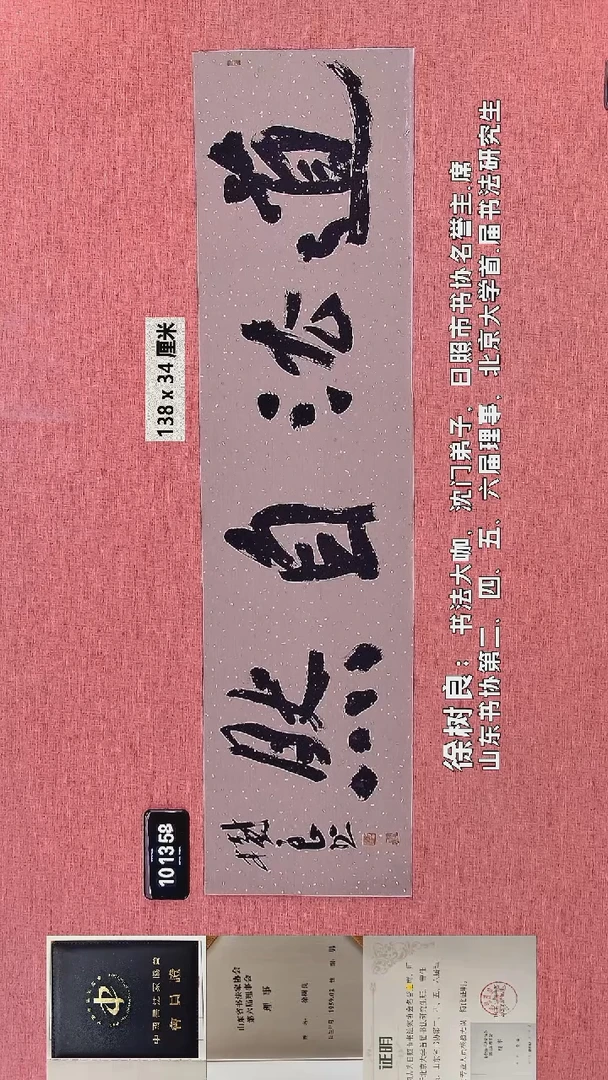 138 x 34 厘米
道法自然
樹良
徐树良：书法大咖、沈门弟子、日照市书协名誉主席
山东书协第二、四、五、六届理事、北京大学首届书法研究生
10 13 58
中國書法家協會
會員證
山东省书法家协会
第六届理事会
理 事
证明